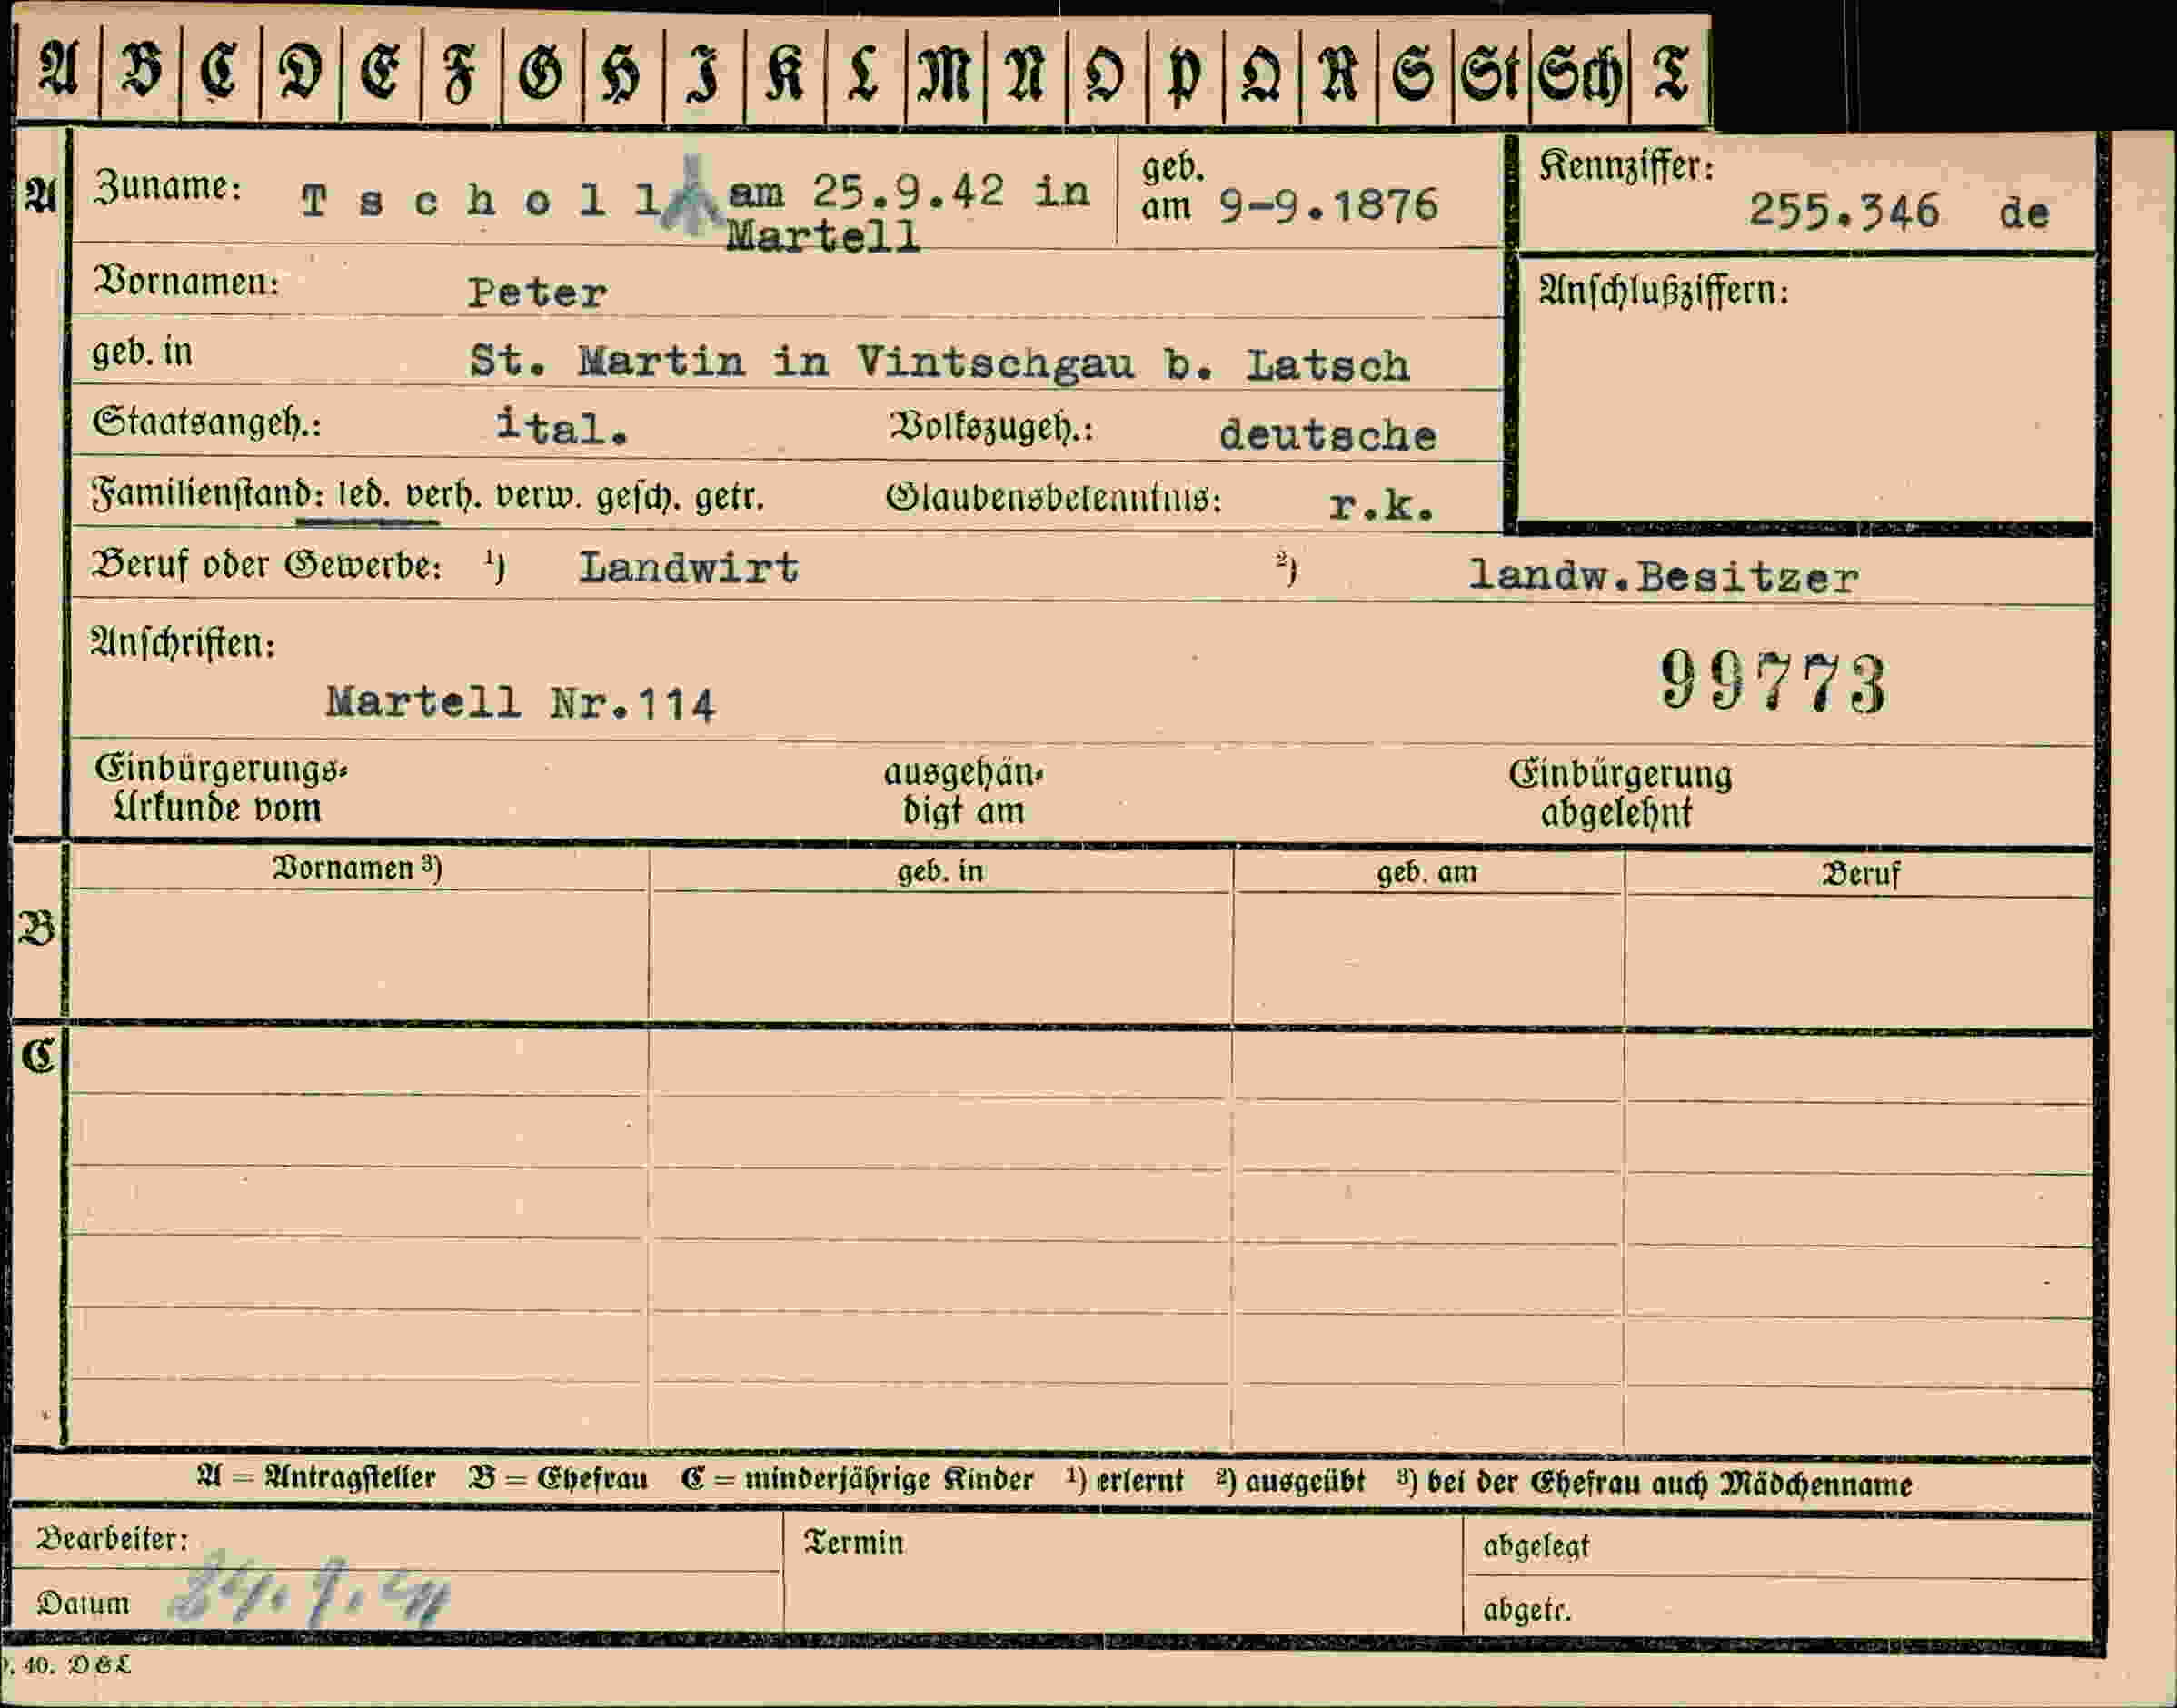 A B C D E F G H I K L M N O P Q R S St Sch T
A
Zuname: Tscholl am 25.9.42 in
Martell
geb.
am 9-9.1876
Kennziffer:
255.346 de
Vornamen: Peter
Anschlußziffern:
geb. in St. Martin in Vintschgau b. Latsch
Staatsangeh.: ital. Volkszugeh.: deutsche
Familienstand: led. verh. verw. gesch. getr. Glaubensbekenntnis: r.k.
Beruf oder Gewerbe: ¹) Landwirt ²) landw.Besitzer
Anschriften:
99773
Martell Nr.114
Einbürgerungs-
Urkunde vom
ausgehän-
digt am
Einbürgerung
abgelehnt
Vornamen ³) geb. in geb. am Beruf
B
C
A = Antragsteller B = Ehefrau C = minderjährige Kinder ¹) erlernt ²) ausgeübt ³) bei der Ehefrau auch Mädchenname
Bearbeiter:
Termin
abgelegt
Datum
abgetr.
40. D&L